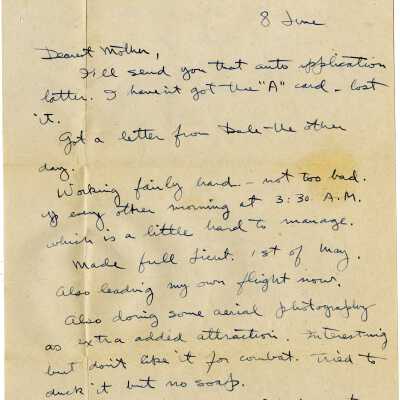 8 June
Dearest Mother,
I'll send you that auto application
latter. I haven't got the "A" card - lost
it.
Got a letter from Dale the other
day.
Working fairly hard - not too bad.
up every other morning at 3:30 A.M.
which is a little hard to manage.
Made full Lieut. 1st of May.
Also leading my own flight now.
Also doing some aerial photography
as extra added attraction. Interesting
but don't like it for combat. Tried to
duck it but no soap.